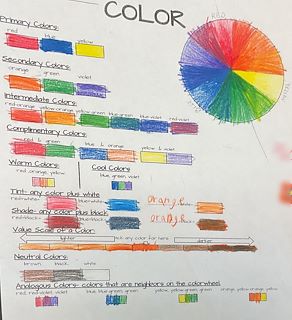 COLOR
RED
Primary Colors:
red blue yellow
Secondary Colors:
orange green violet
Intermediate Colors:
red-orange yellow-orange yellow-green blue-green blue-violet red-violet
Complimentary Colors:
red & green blue & orange yellow & violet
Warm Colors Cool Colors
red, orange, yellow blue, green, violet
Tint- any color plus white
red+white= blue+white= orange
Shade- any color plus black
red+black= blue+black= orange
Value Scale of a Color:
lighter pick any color for here darker
Neutral Colors:
brown black white
Analogous Colors- colors that are neighbors on the colorwheel
red, red-violet, violet blue, blue-green, green yellow, yellow-green, green orange, yellow-orange, yellow